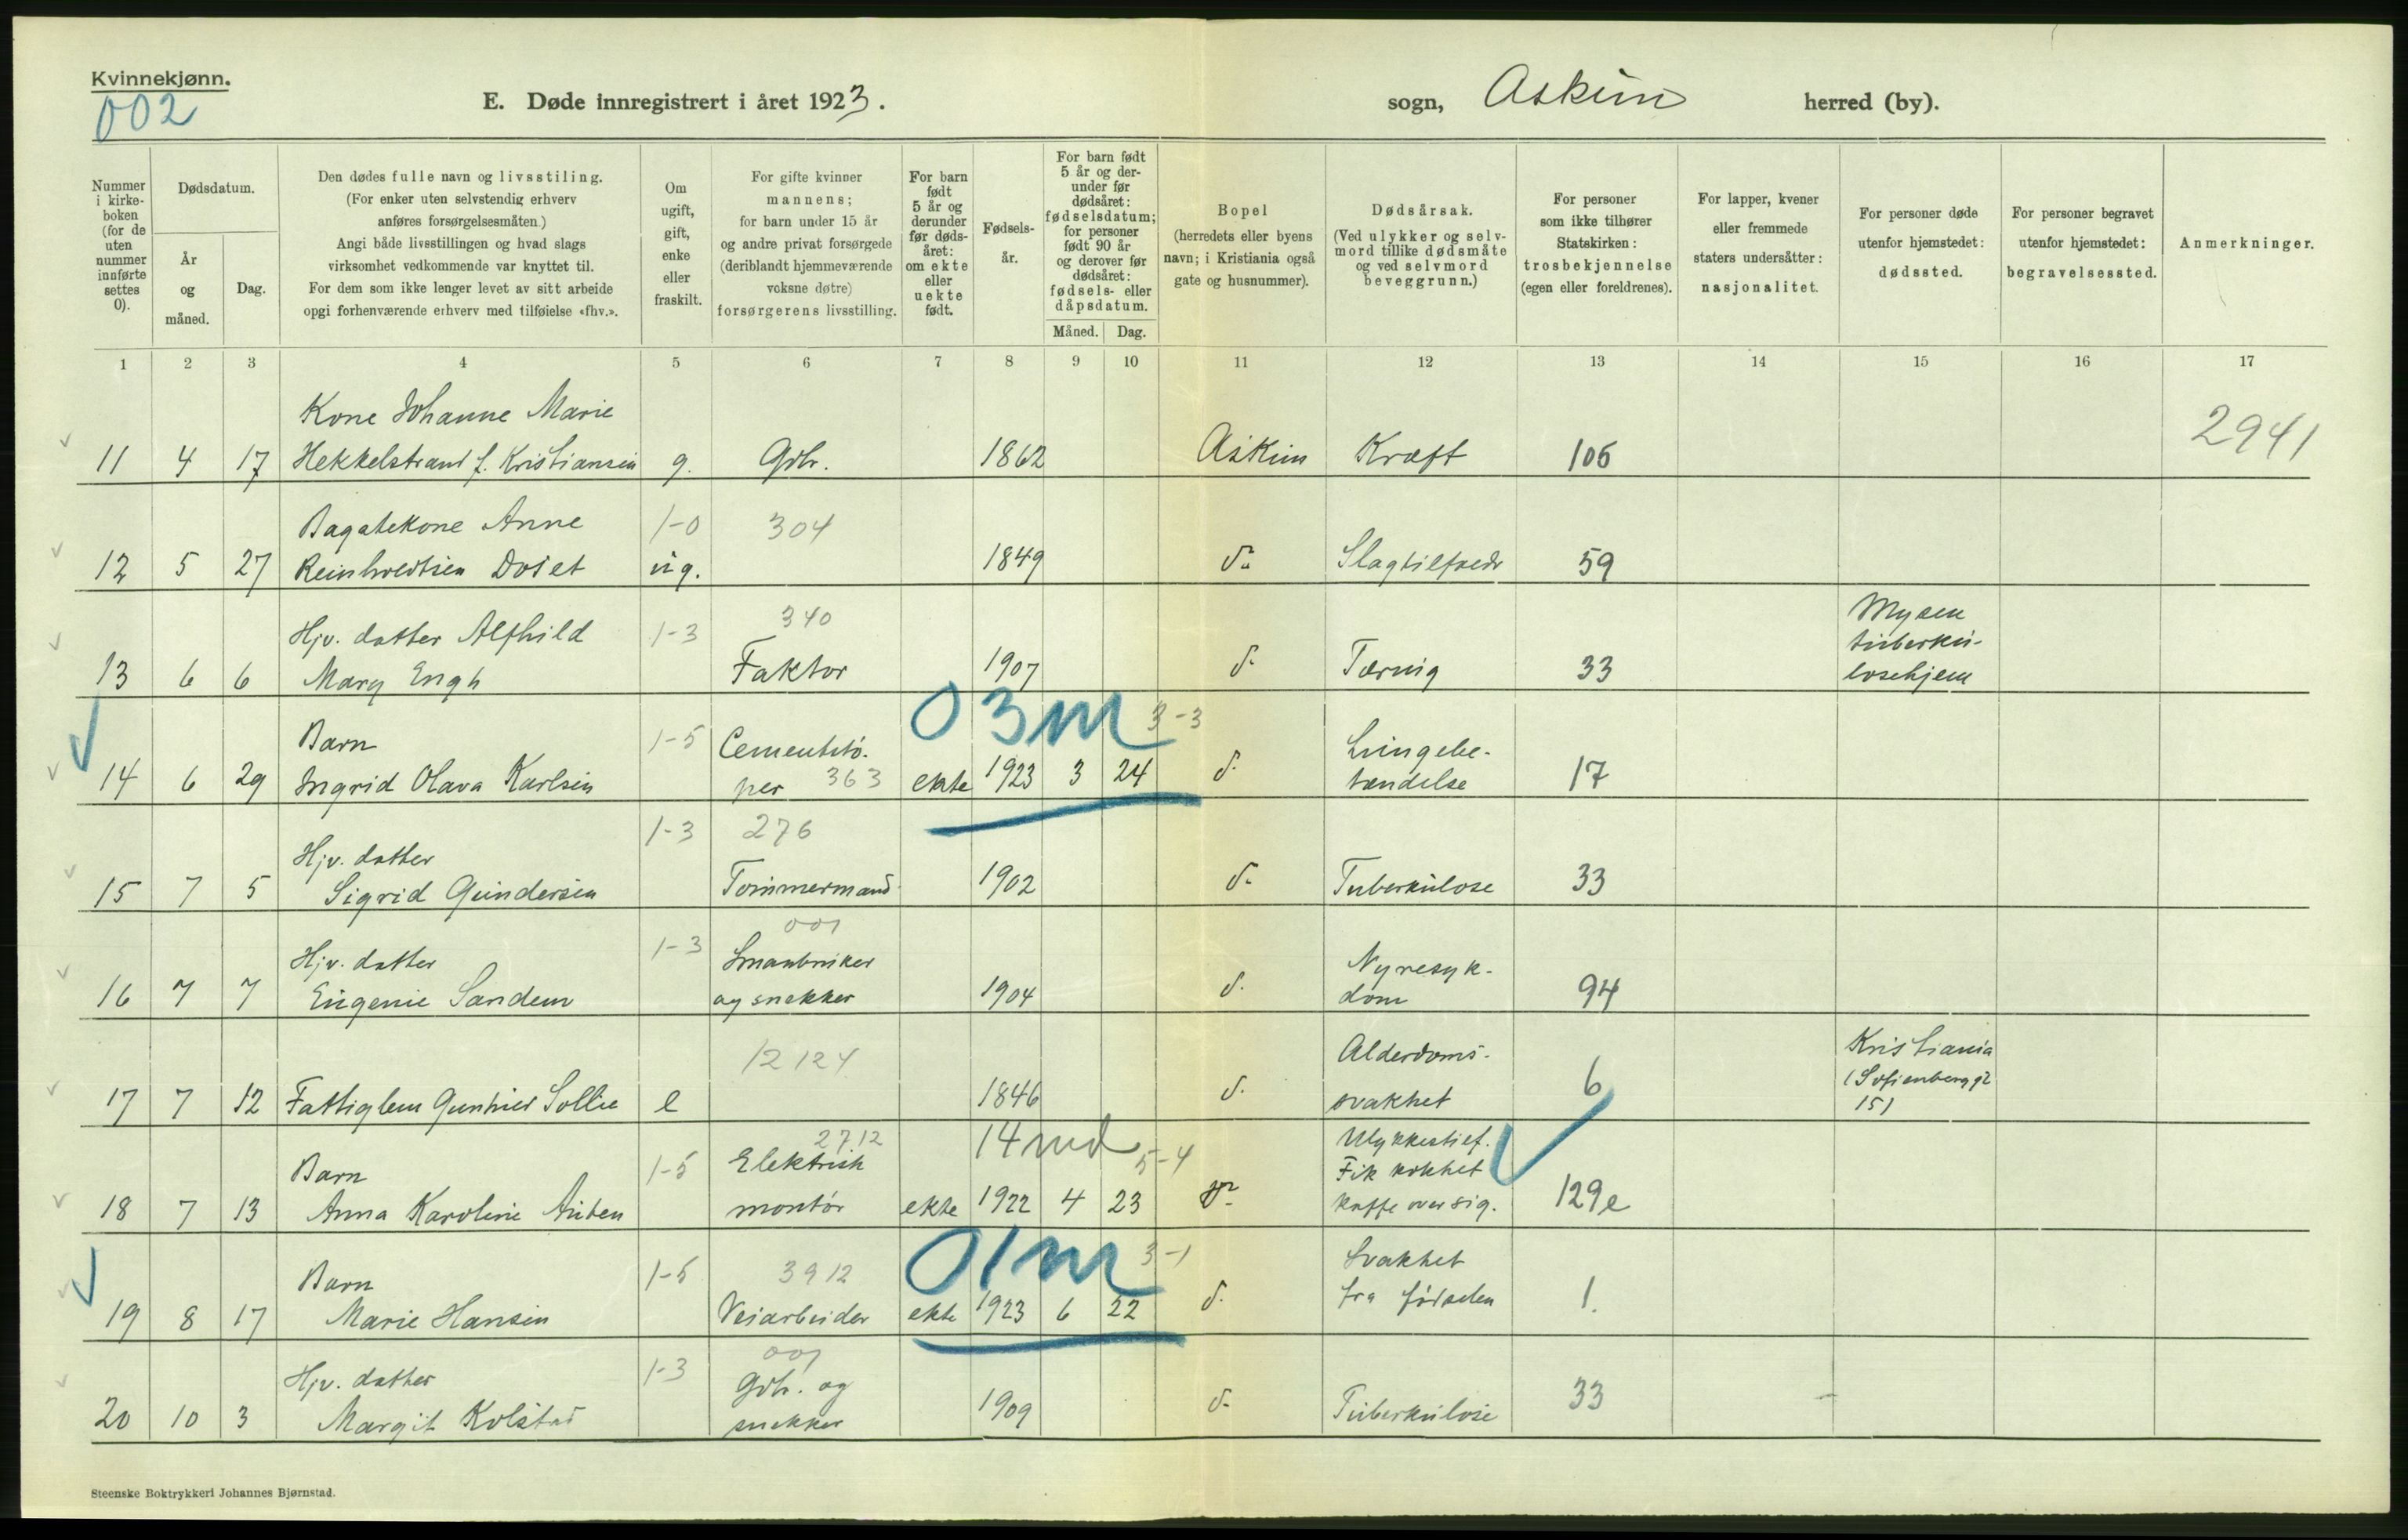 Kvinnekjønn.
002
E. Døde innregistrert i året 1923.
sogn, Askim herred (by).
Nummer i kirke-boken (for de uten nummer innførte settes 0).
Dødsdatum.
År og måned.
Dag.
Den dødes fulle navn og livsstiling.
(For enker uten selvstendig erhverv
anføres forsørgelsesmåten.)
Angi både livsstillingen og hvad slags
virksomhet vedkommende var knyttet til.
For dem som ikke lenger levet av sitt arbeide
opgi forhenværende erhverv med tilføielse «fhv.».
Om ugift, gift, enke eller fraskilt.
For gifte kvinner
mannens;
for barn under 15 år
og andre privat forsørgede
(deriblandt hjemmeværende
voksne døtre)
forsørgerens livsstilling.
For barn født 5 år og derunder før døds-året: om ekte eller uekte født.
Fødsels-år.
For barn født 5 år og der-under før dødsåret: fødselsdatum; for personer født 90 år og derover før dødsåret: fødsels- eller dåpsdatum.
Måned. Dag.
Bopel
(herredets eller byens
navn; i Kristiania også
gate og husnummer).
Dødsårsak.
(Ved ulykker og selv-
mord tillike dødsmåte
og ved selvmord
beveggrunn.)
For personer
som ikke tilhører
Statskirken:
trosbekjennelse
(egen eller foreldrenes).
For lapper, kvener
eller fremmede
staters undersåtter:
nasjonalitet.
For personer døde
utenfor hjemstedet:
dødssted.
For personer begravet
utenfor hjemstedet:
begravelsessted.
Anmerkninger.
1 2 3 4 5 6 7 8 9 10 11 12 13 14 15 16 17
Kone Johanne Marie
2941
11 4 17 Hekkelstrand f. Kristiansen g. Gbr. 1862 Askim Kræft 106
Anne 1-0 304
12 5 27 ug. 1849 d: 59
Hjv. datter Alfhild 1-3 340 Mysen
tuberku-
13 6 6 Mary Engh Faktor 1907 d: Tæring 33 losehjem
03m 3-3
Barn 1-5 Cementstø- Lungebe-
14 6 29 Ingrid Olava Karlsen per 363 ekte 1923 3 24 d: tændelse 17
1-3 276
Hjv. datter
15 7 5 Sigrid Gundersen Tømmermand 1902 d: Tuberkulose 33
001
Hjv. datter 1-3 Småbruker Nyresyk-
16 7 7 Eugenie Sandem og snekker 1904 d: dom 94
12124 Alderdoms- Kristiania
(Sofienberggt
17 7 12 Fattiglem Sollie e 1846 d: svakhet 6 15)
2712 14 md 5-4 Ulykkestilf.
Barn 1-5 Elektrisk Fik kokhet
18 7 13 Anna Karoline montør ekte 1922 4 23 kaffe over sig. 129e
01m 3-1
Barn 1-5 3912 Svakhet
19 8 17 Marie Hansen Veiarbeider ekte 1923 6 22 d: fra fødselen 1.
001
Hjv. datter 1-3 Gbr. og
20 10 3 Margit Kolstad snekker 1909 d: Tuberkulose 33
Steenske Boktrykkeri Johannes Bjørnstad.